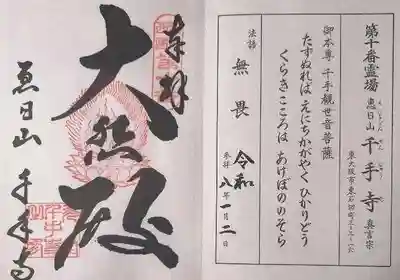 第十番霊場
恵日山 千手寺 真言宗
東大阪市東石切町三-三-一六
御本尊 千手観世音菩薩
たずぬれば えにちかがやく ひかりどう
くらきこころは あけぼののそら
法語
無畏
参拝 令和八年一月二日
奉拝
大悲殿
恵日山
千手寺